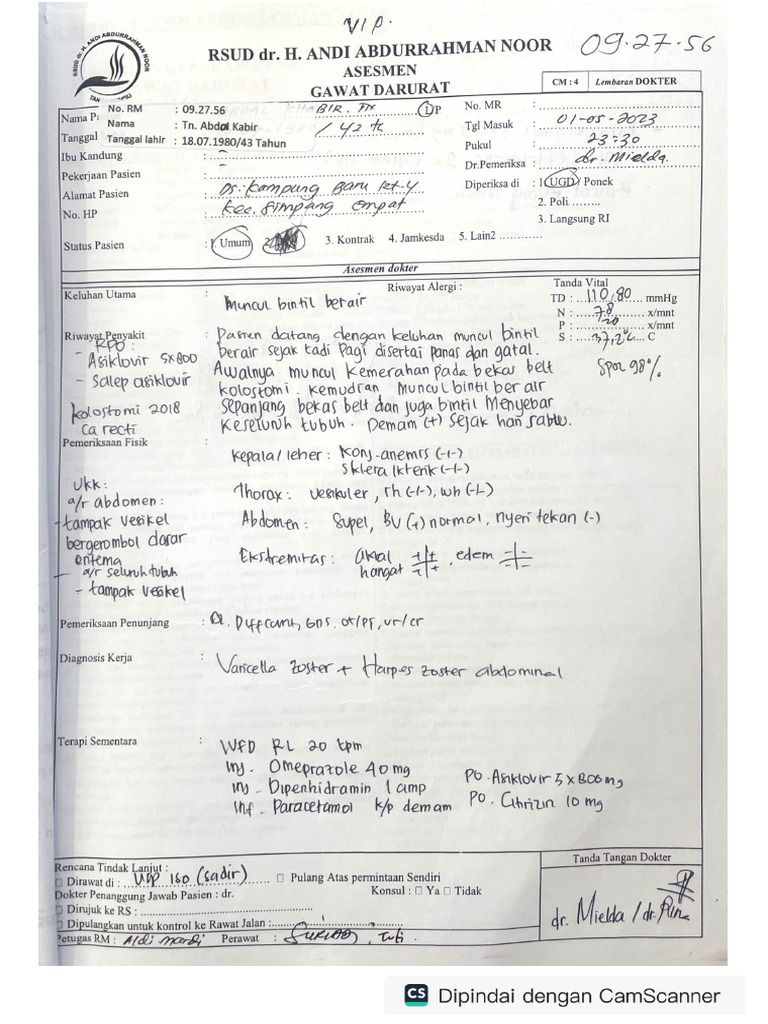 VIP.
RSUD dr. H. ANDI ABDURRAHMAN NOOR
09.27.56
ASESMEN
GAWAT DARURAT
CM : 4 Lembaran DOKTER
RSUD dr. H. ANDI ABDURRAHMAN NOOR
No. RM : 09.27.56
Nama : Tn. Abdol Kabir
Tanggal lahir : 18.07.1980/43 Tahun
BIR. Tn L/P
/ 42 th
No. MR :
Tanggal
Tgl Masuk : 01-05-2023
Ibu Kandung : -
Pukul : 23:30
Pekerjaan Pasien : -
Dr.Pemeriksa : dr. Mielda.
Alamat Pasien : Ds. Kampung Baru Rt.4
Diperiksa di : 1. UGD / Ponek
No. HP : Kec. Simpang Empat
2. Poli.........
3. Langsung RI
Status Pasien : 1. Umum 3. Kontrak 4. Jamkesda 5. Lain2 ............
Asesmen dokter
Keluhan Utama : Muncul bintil berair
Riwayat Alergi :
Tanda Vital
TD : 110/80 mmHg
N : 78 x/mnt
P : 20 x/mnt
S : 37,2°C C
Spo2 98%
Riwayat Penyakit : Pasien datang dengan keluhan muncul bintil
berair sejak tadi pagi disertai panas dan gatal.
Awalnya muncul kemerahan pada bekas belt
kolostomi. Kemudian muncul bintil berair
sepanjang bekas belt dan juga bintil menyebar
keseluruh tubuh. Demam (+) sejak hari sabtu.
- RPO :
Asiklovir 5x800
- Salep asiklovir
kolostomi 2018
Ca recti
Pemeriksaan Fisik :
Kepala/leher : Konj-anemis (-/-)
Sklera ikterik (-/-)
Thorax : vesikuler, rh (-/-), wh (-/-)
Abdomen : Supel, BU (+) normal, nyeri tekan (-)
Ekstremitas : akral hangat +/+ +/+ , edem -/- -/-
Ukk :
a/r abdomen :
- tampak vesikel
bergerombol dasar
eritema
- a/r seluruh tubuh
- tampak vesikel
Pemeriksaan Penunjang : DL. Diffcount, GDS. ot/pt, ur/cr
Diagnosis Kerja : Varicella zoster + Harpes zoster abdominal
Terapi Sementara : IVFD RL 20 tpm
Inj. Omeprazole 40 mg
Inj - Dipenhidramin 1 amp
Inf - Paracetamol k/p demam
PO. Asiklovir 5 x 800 mg
PO. Citrizin 10 mg
Rencana Tindak Lanjut :
□ Dirawat di : VIP ISO (sadir) □ Pulang Atas permintaan Sendiri
Dokter Penanggung Jawab Pasien : dr. Konsul : □ Ya □ Tidak
□ Dirujuk ke RS :
□ Dipulangkan untuk kontrol ke Rawat Jalan :
Petugas RM : Aldi mardi Perawat :
Tanda Tangan Dokter
dr. Mielda / dr.
CS Dipindai dengan CamScanner